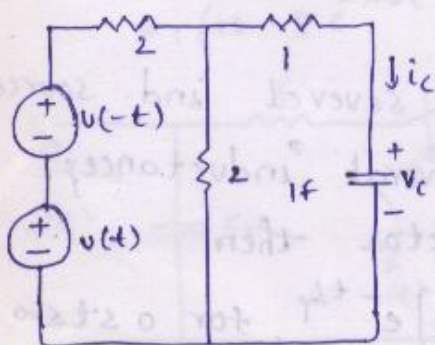 2
1
↓ic
+
−
u(-t)
2
1f
+
Vc
−
+
−
u(t)